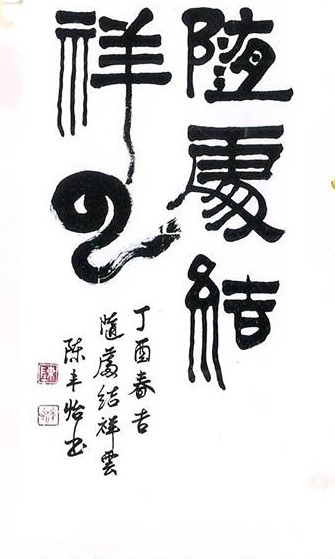 随處結
祥云
丁酉春吉
隨處結祥雲
陳丰怡书